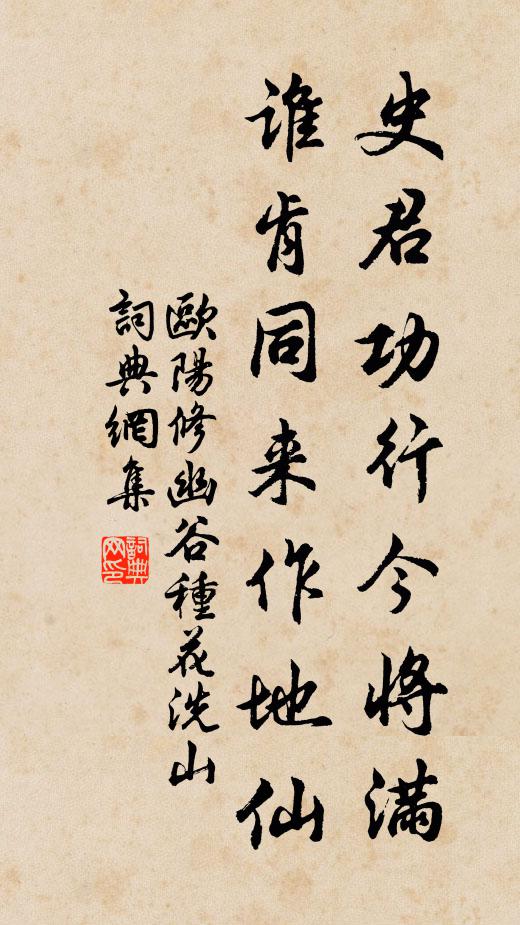 史君功行今将满
谁肯同来作地仙
歐陽修幽谷種花洗山
詞典網集
詞典
网印